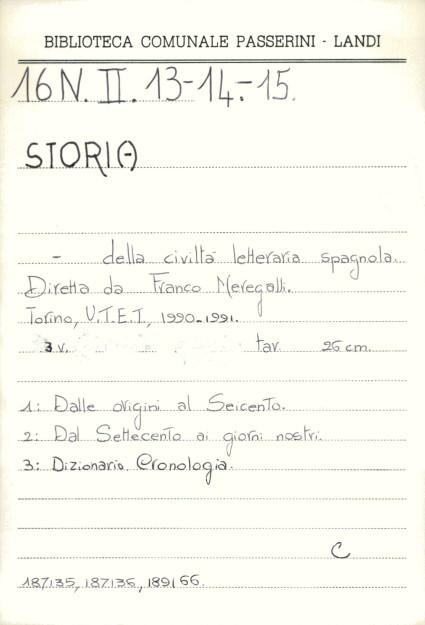 BIBLIOTECA COMUNALE PASSERINI - LANDI
16 N. II. 13-14-15.
STORIA
- della civiltà letteraria spagnola.
Diretta da Franco Meregalli.
Torino, U.T.E.T., 1990-1991.
3 v. tav. 26 cm.
1: Dalle origini al Seicento.
2: Dal Settecento ai giorni nostri.
3: Dizionario. Cronologia.
C
187135, 187136, 189166.